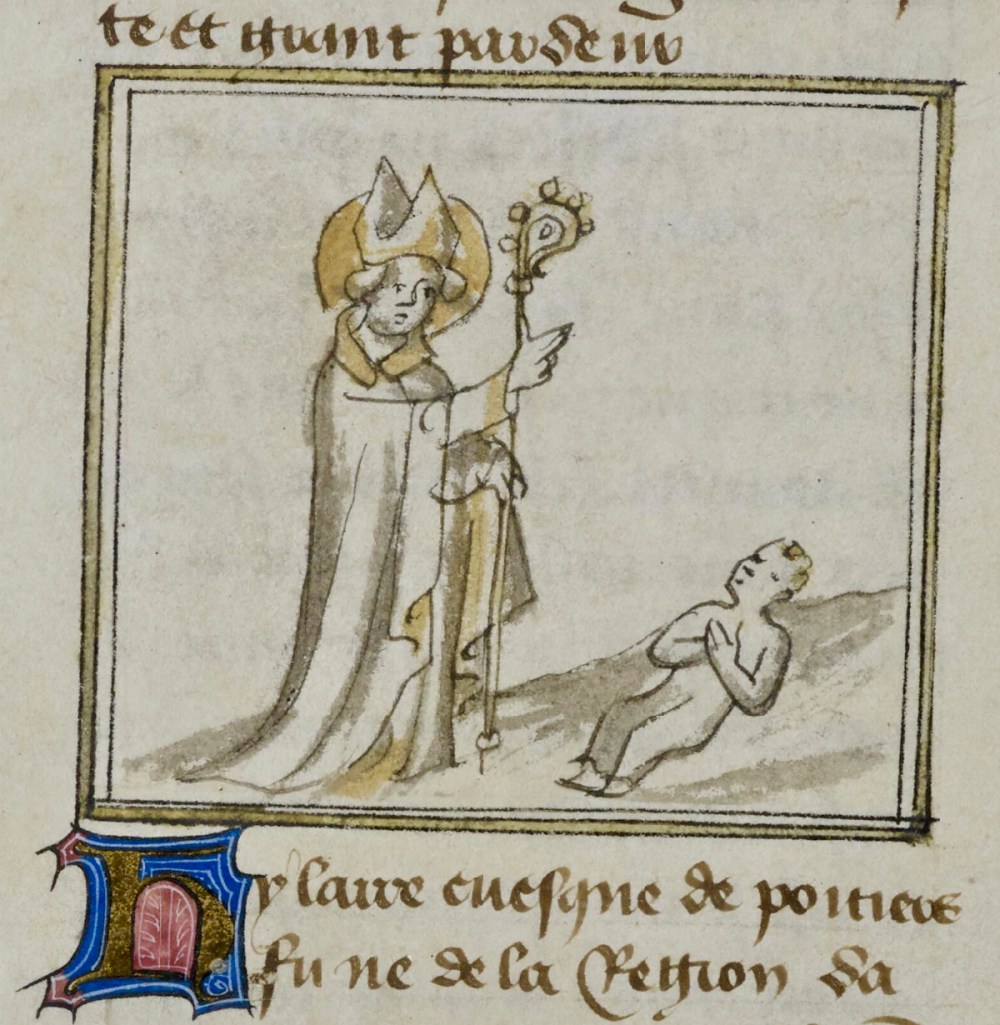 te et grant
hylaire euesque de poitiers
fu ne de la Region da